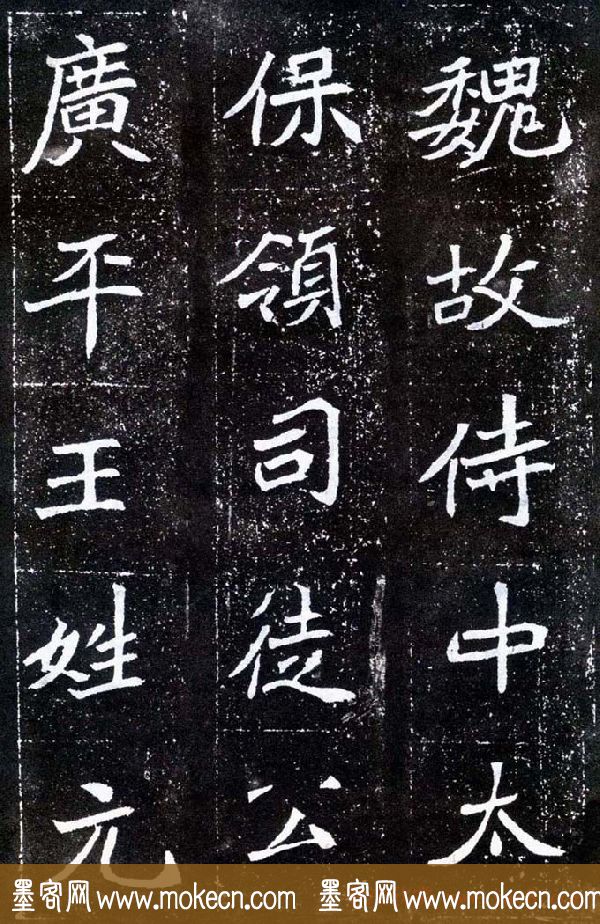 魏故侍中太
保領司徒公
廣平王姓元
墨客网 www.mokecn.com 墨客网 www.mokecn.com